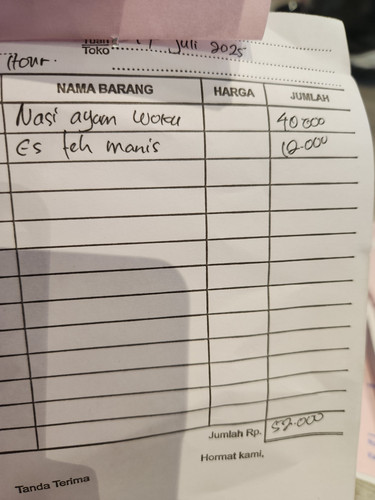 Tuan
Toko
Juli 2025
NAMA BARANG HARGA JUMLAH
Nasi ayam woku 40.000
Es teh manis 12.000
Jumlah Rp. 52.000
Hormat kami,
Tanda Terima